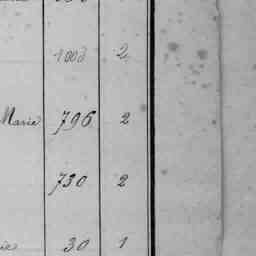 1000 2
Marie 796 2
730 2
30 1